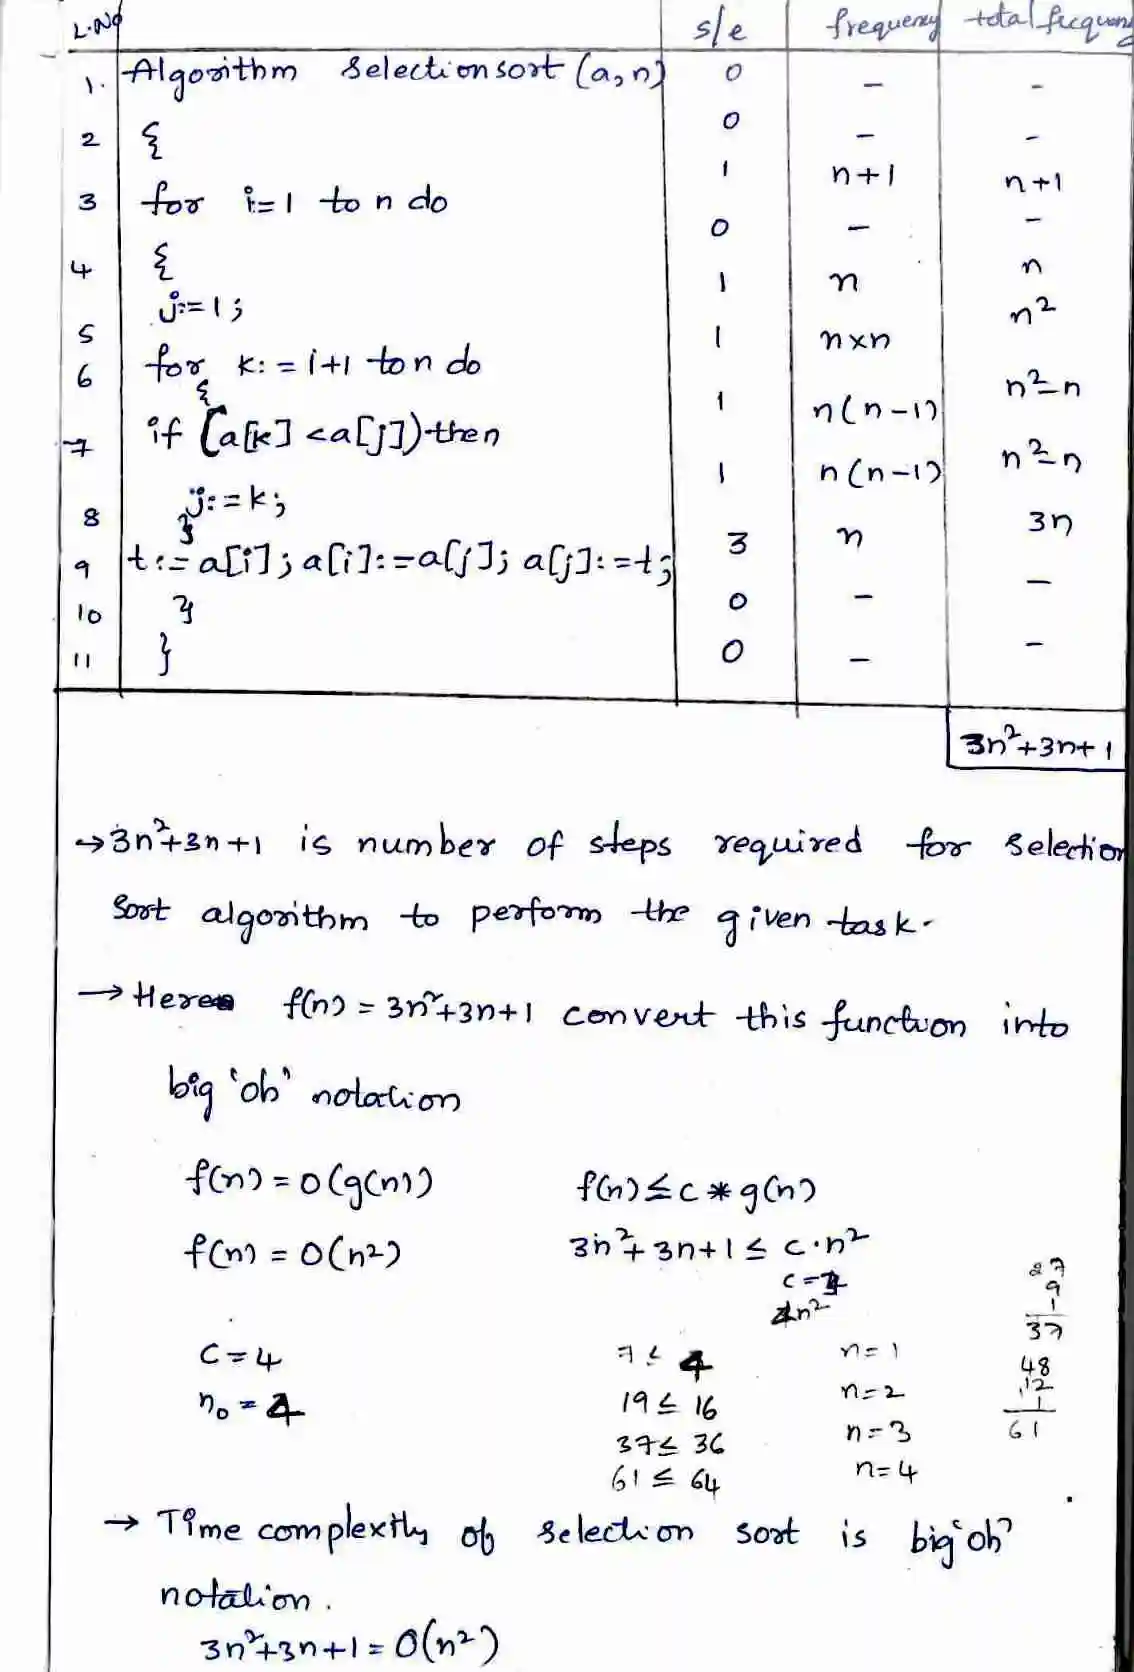 L.No s/e frequency total frequen
1. Algorithm Selectionsort (a,n) 0 - -
2 { 0 - -
3 for i=1 to n do 1 n+1 n+1
4 { 0 - -
5 j:=1; 1 n n
6 for k:=i+1 to n do 1 n×n n²
{
7 if (a[k] <a[j]) then 1 n(n-1) n²-n
8 j:=k; 1 n(n-1) n²-n
}
9 t:=a[i]; a[i]:=a[j]; a[j]:=t; 3 n 3n
10 } 0 - -
11 } 0 - -
3n²+3n+1
→3n²+3n+1 is number of steps required for Selection
Sort algorithm to perform the given task.
→ Here f(n) = 3n²+3n+1 convert this function into
big 'oh' notation
f(n) = O(g(n)) f(n) ≤ c * g(n)
f(n) = O(n²) 3n²+3n+1 ≤ c·n²
c=4
4n²
27
9
1
37
C=4 7≤ 4 n=1
n₀ = 4 19≤ 16 n=2
37≤ 36 n=3
61 ≤ 64 n=4
48
12
1
61
→ Time complextly of selection sort is big 'oh'
notation.
3n²+3n+1 = O(n²)